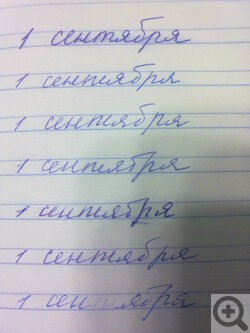 1 сентября
1 сентября
1 сентября
1 сентября
1 сентября
1 сентября
1 сентября